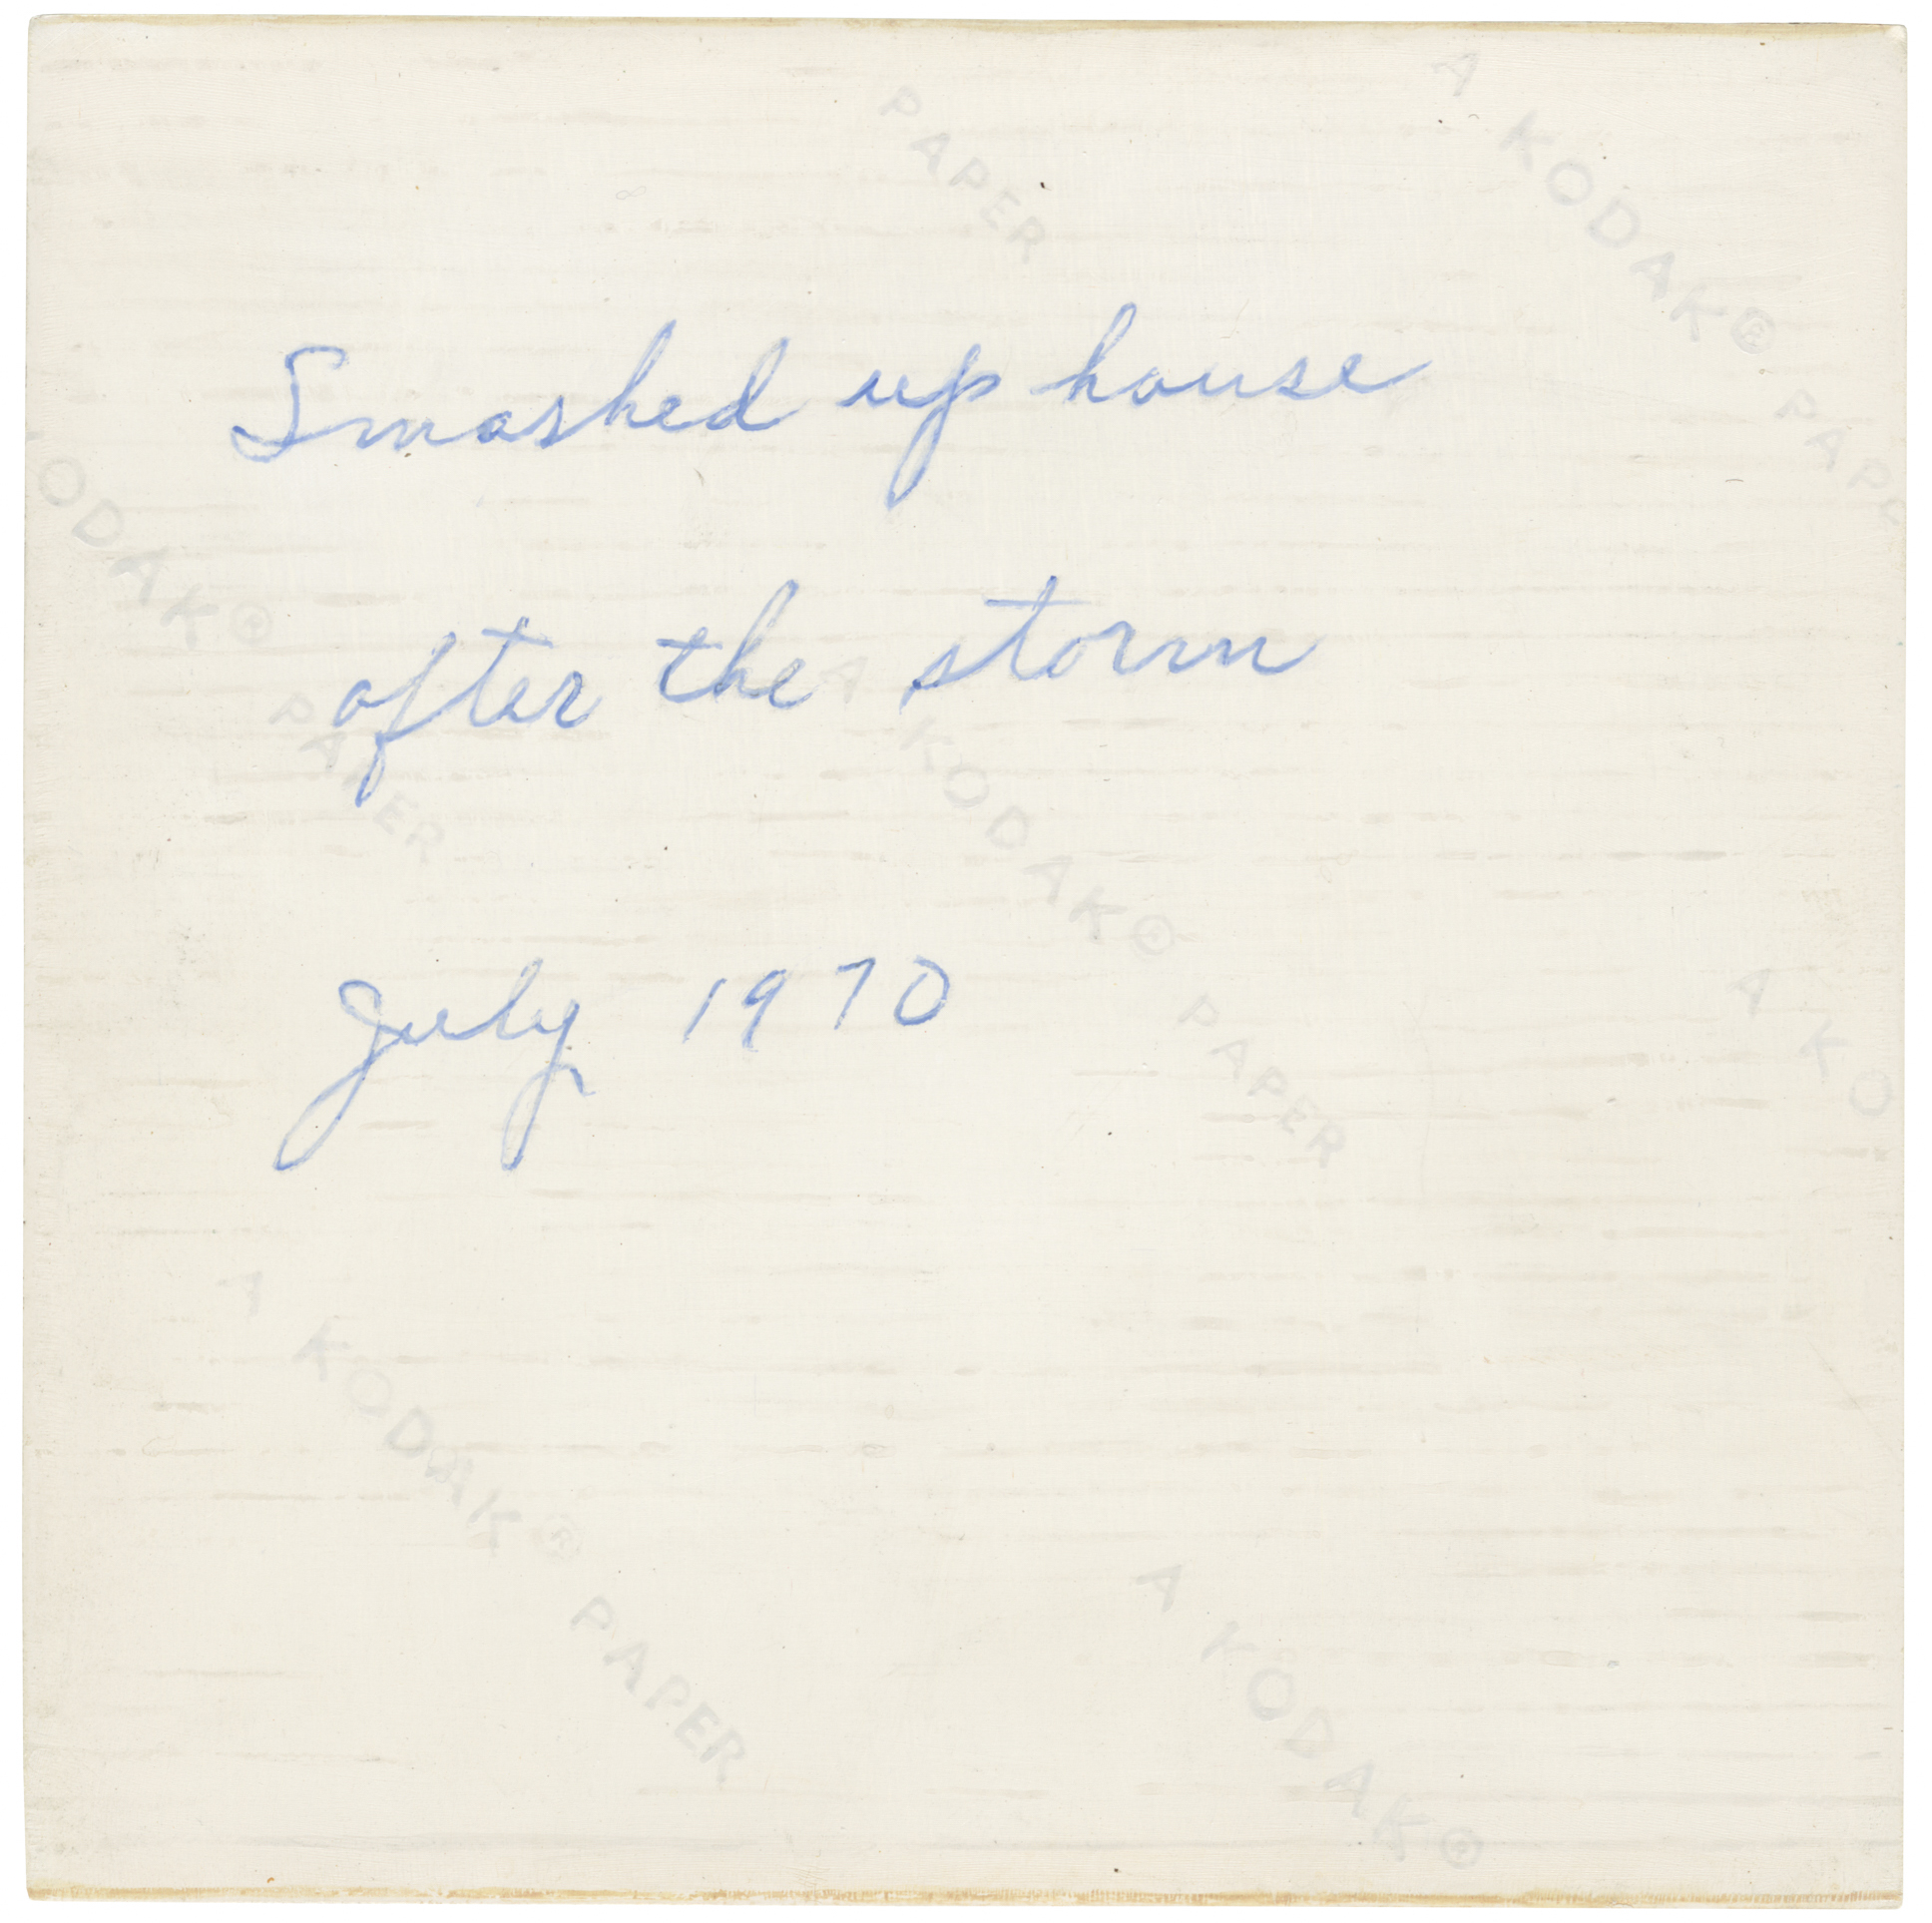 Smashed up house
after the storm
July 1970
PAPER
A KODAK®
PAPE
ODAK®
PAPER
A KODAK®
PAPER
A KO
A KODAK®
PAPER
A KODAK®